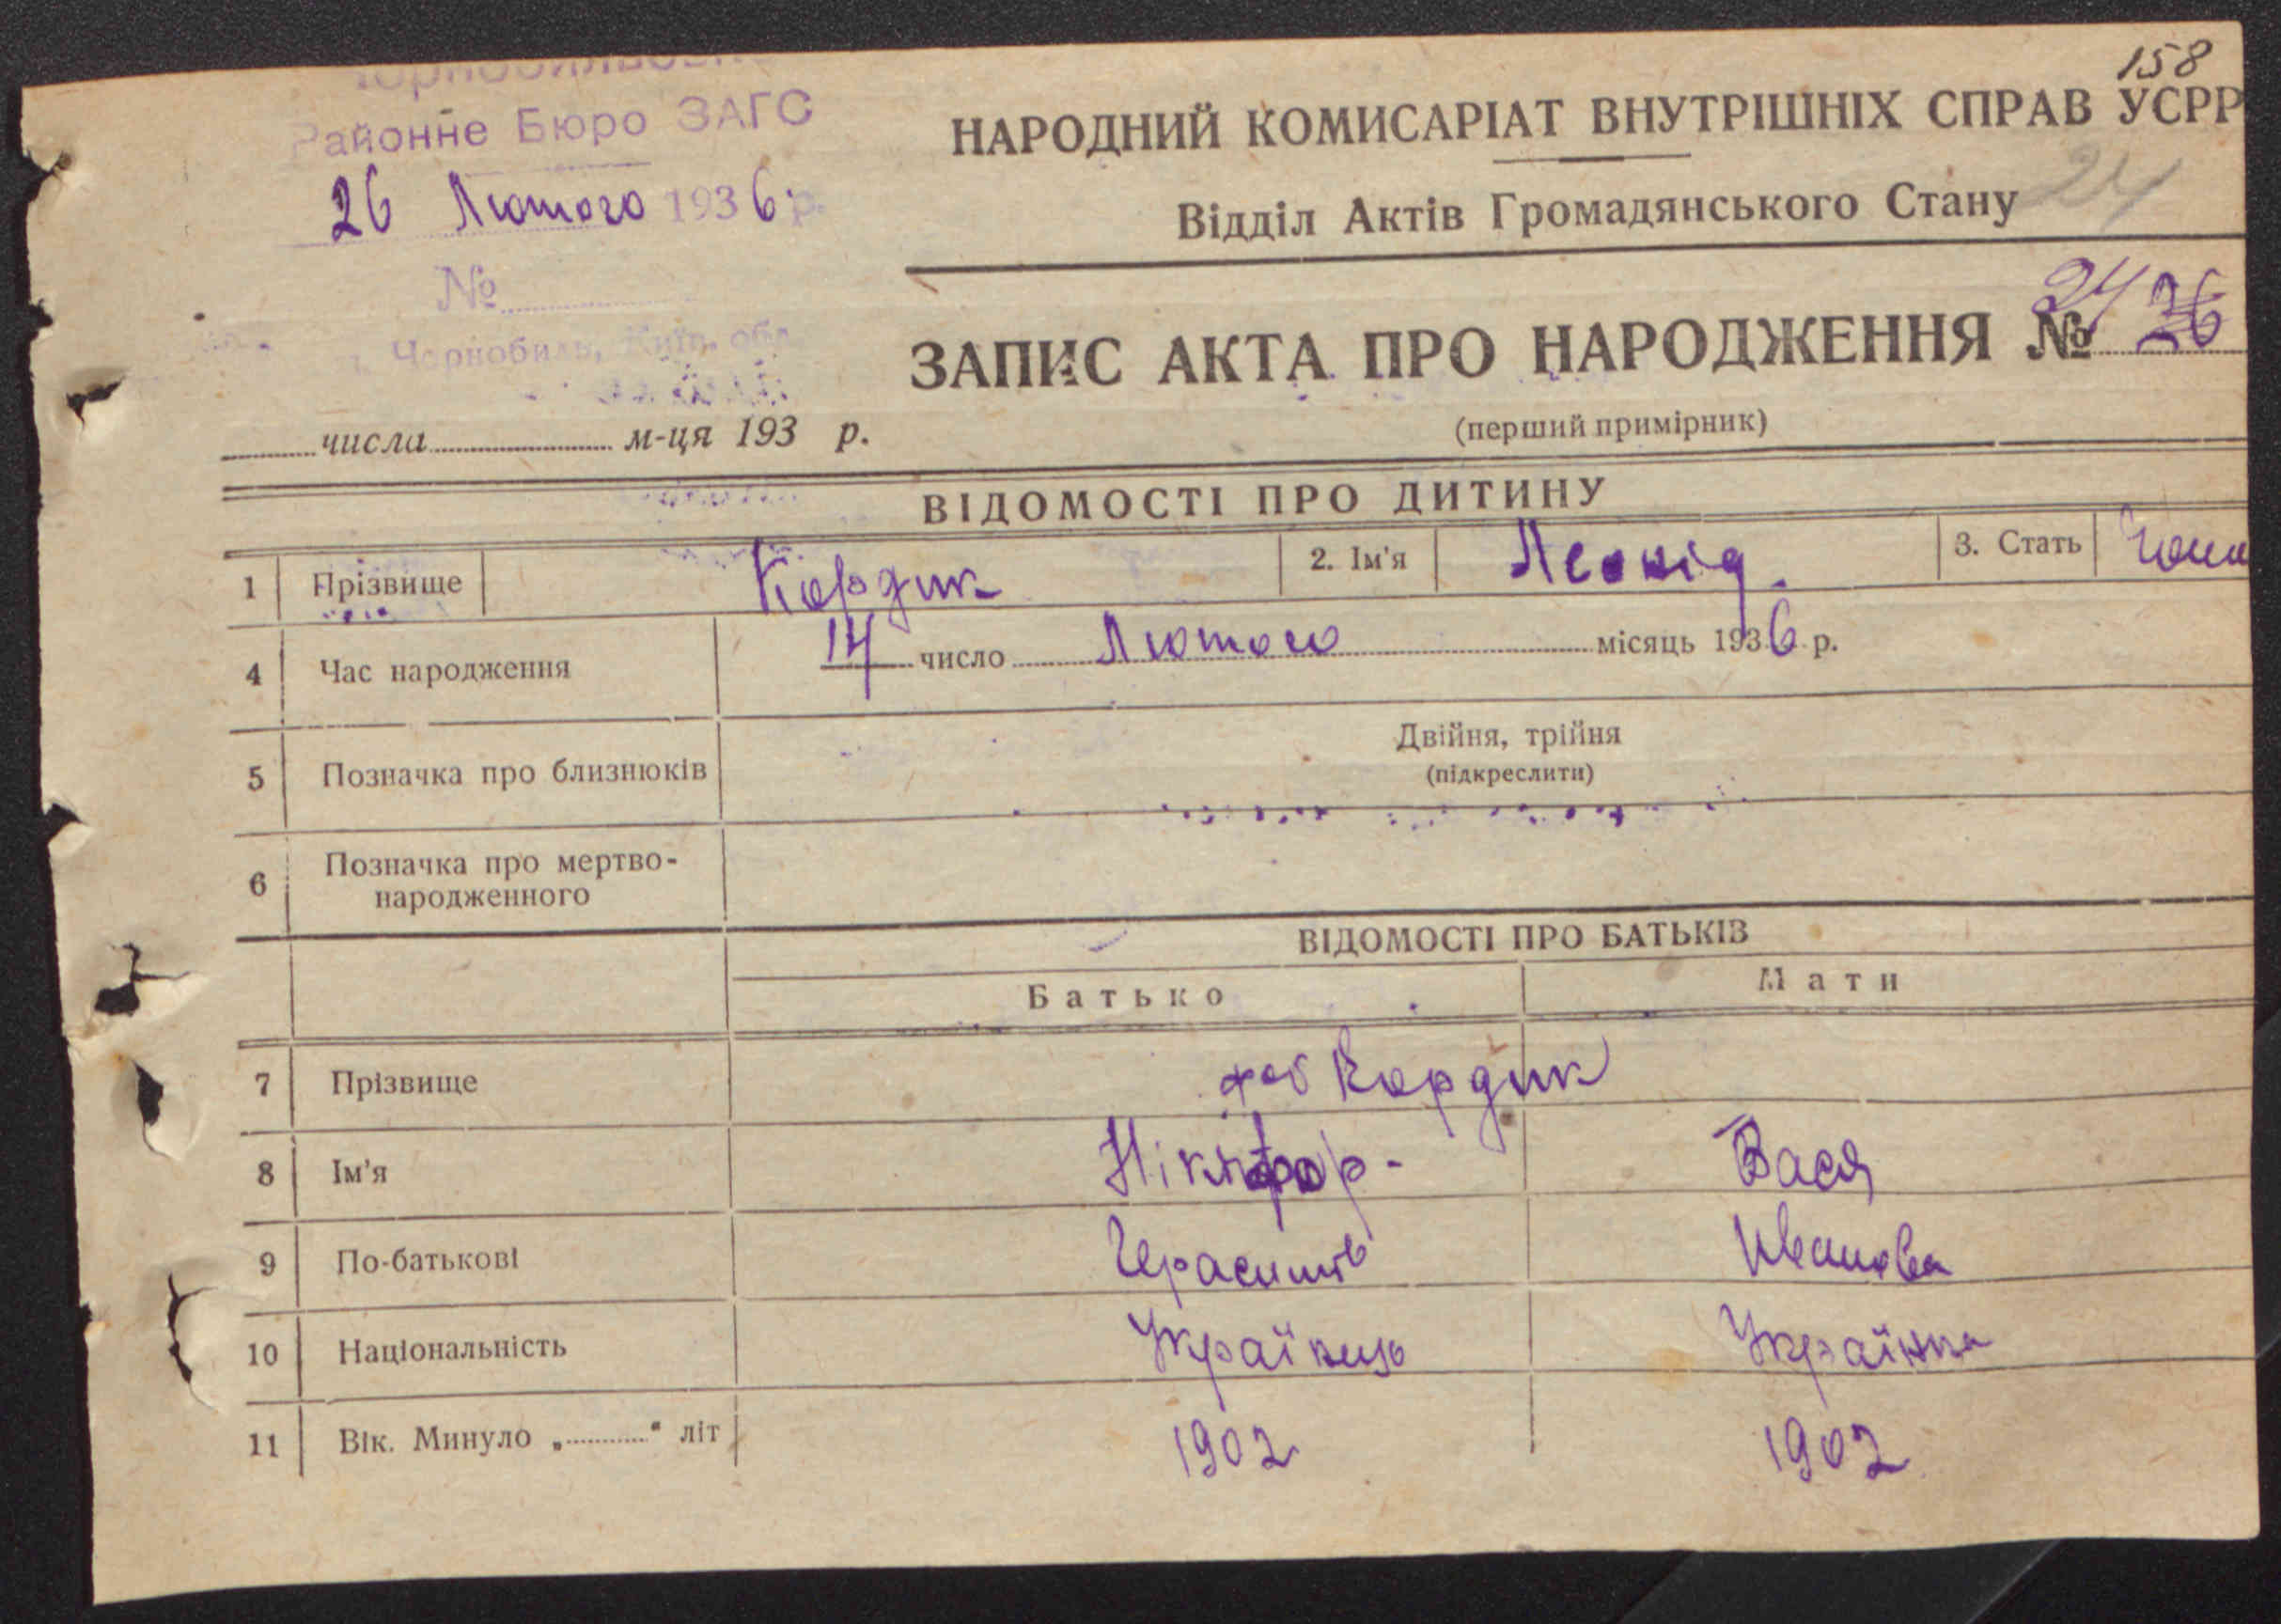 158
Районне Бюро ЗАГС
НАРОДНИЙ КОМИСАРІАТ ВНУТРІШНІХ СПРАВ УСРР
26 Лютого 1936 р.
Відділ Актів Громадянського Стану
24
№
24 36
м. Чорнобиль, Київ. обл.
ЗАПИС АКТА ПРО НАРОДЖЕННЯ №
(перший примірник)
числа м-ця 193 р.
ВІДОМОСТІ ПРО ДИТИНУ
1 Прізвище Кордик 2. Ім'я Леонід 3. Стать
4 Час народження 14 число Лютого місяць 1936 р.
5 Позначка про близнюків Двійня, трійня
(підкреслити)
6 Позначка про мертво-
народженного
ВІДОМОСТІ ПРО БАТЬКІВ
Батько Мати
7 Прізвище Кордик
8 Ім'я Нікіфор- Вася
9 По-батькові Герасимів Иванова
10 Національність Українець Українка
11 Вік. Минуло „ “ літ 1902 1902